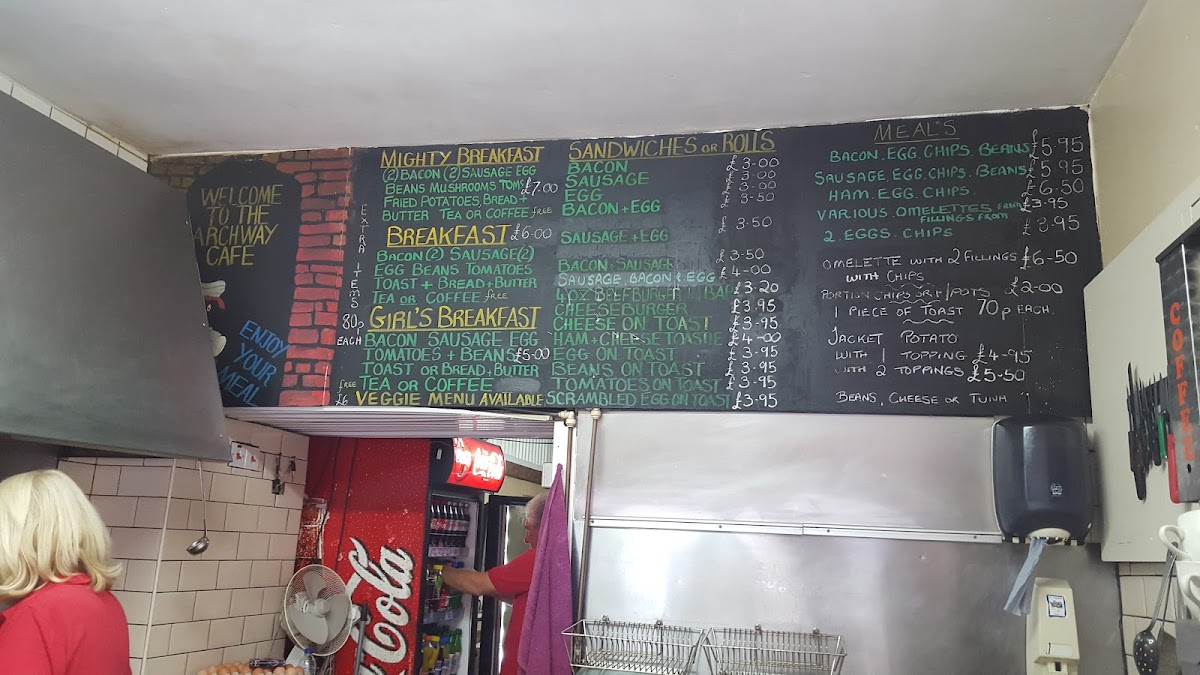 WELCOME
TO THE
ARCHWAY
CAFE
ENJOY
YOUR
MEAL
EXTRA ITEMS
80p
EACH
MIGHTY BREAKFAST
(2) BACON (2) SAUSAGE EGG
BEANS MUSHROOMS TOMS £7.00
FRIED POTATOES, BREAD +
BUTTER TEA OR COFFEE free
BREAKFAST £6.00
BACON (2) SAUSAGE (2)
EGG BEANS TOMATOES
TOAST + BREAD + BUTTER
TEA OR COFFEE free
GIRL'S BREAKFAST
BACON SAUSAGE EGG
TOMATOES + BEANS £5-00
TOAST OR BREAD + BUTTER
free TEA OR COFFEE
£6 VEGGIE MENU AVAILABLE
SANDWICHES OR ROLLS
BACON £3-00
SAUSAGE £3-00
EGG £3-00
BACON + EGG £3-50
SAUSAGE + EGG £3-50
BACON + SAUSAGE £3-50
SAUSAGE BACON + EGG £4-00
4OZ BEEFBURGER IN BAP £3-20
CHEESEBURGER £3.95
CHEESE ON TOAST £3-95
HAM + CHEESE TOASTIE £4-00
EGG ON TOAST £3-95
BEANS ON TOAST £3-95
TOMATOES ON TOAST £3-95
SCRAMBLED EGG ON TOAST £3-95
MEAL'S
BACON. EGG. CHIPS. BEANS £5.95
SAUSAGE. EGG. CHIPS. BEANS. £5.95
HAM. EGG. CHIPS. £6-50
VARIOUS OMELETTES FROM £3-95
FILLINGS FROM
2. EGGS. CHIPS £3-95
OMELETTE WITH 2 FILLINGS £6-50
WITH CHIPS
PORTION CHIPS OR F/POTS £2-00
1 PIECE OF TOAST 70p EACH.
JACKET POTATO
WITH 1 TOPPING £4-95
WITH 2 TOPPINGS £5-50
BEANS, CHEESE OR TUNA
COFFEE
Coca-Cola